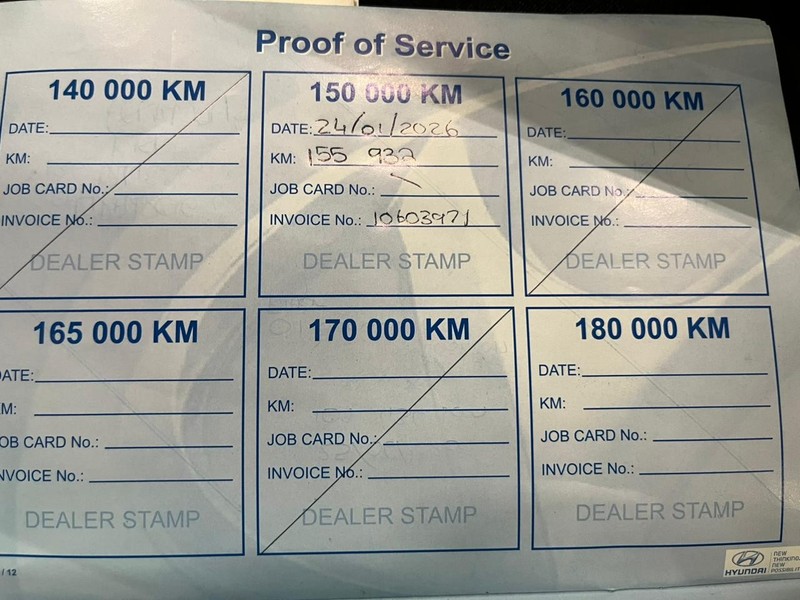 Proof of Service
140 000 KM
DATE:
KM:
JOB CARD No.:
INVOICE No.:
DEALER STAMP
150 000 KM
DATE: 24/01/2026
KM: 155 932
JOB CARD No.:
INVOICE No.: 10603971
DEALER STAMP
160 000 KM
DATE:
KM:
JOB CARD No.:
INVOICE No.:
DEALER STAMP
165 000 KM
ATE:
M:
OB CARD No.:
NVOICE No.:
DEALER STAMP
170 000 KM
DATE:
KM:
JOB CARD No.:
INVOICE No.:
DEALER STAMP
180 000 KM
DATE:
KM:
JOB CARD No.:
INVOICE No.:
DEALER STAMP
/ 12
HYUNDAI
NEW
THINKING.
NEW
POSSIBILIT